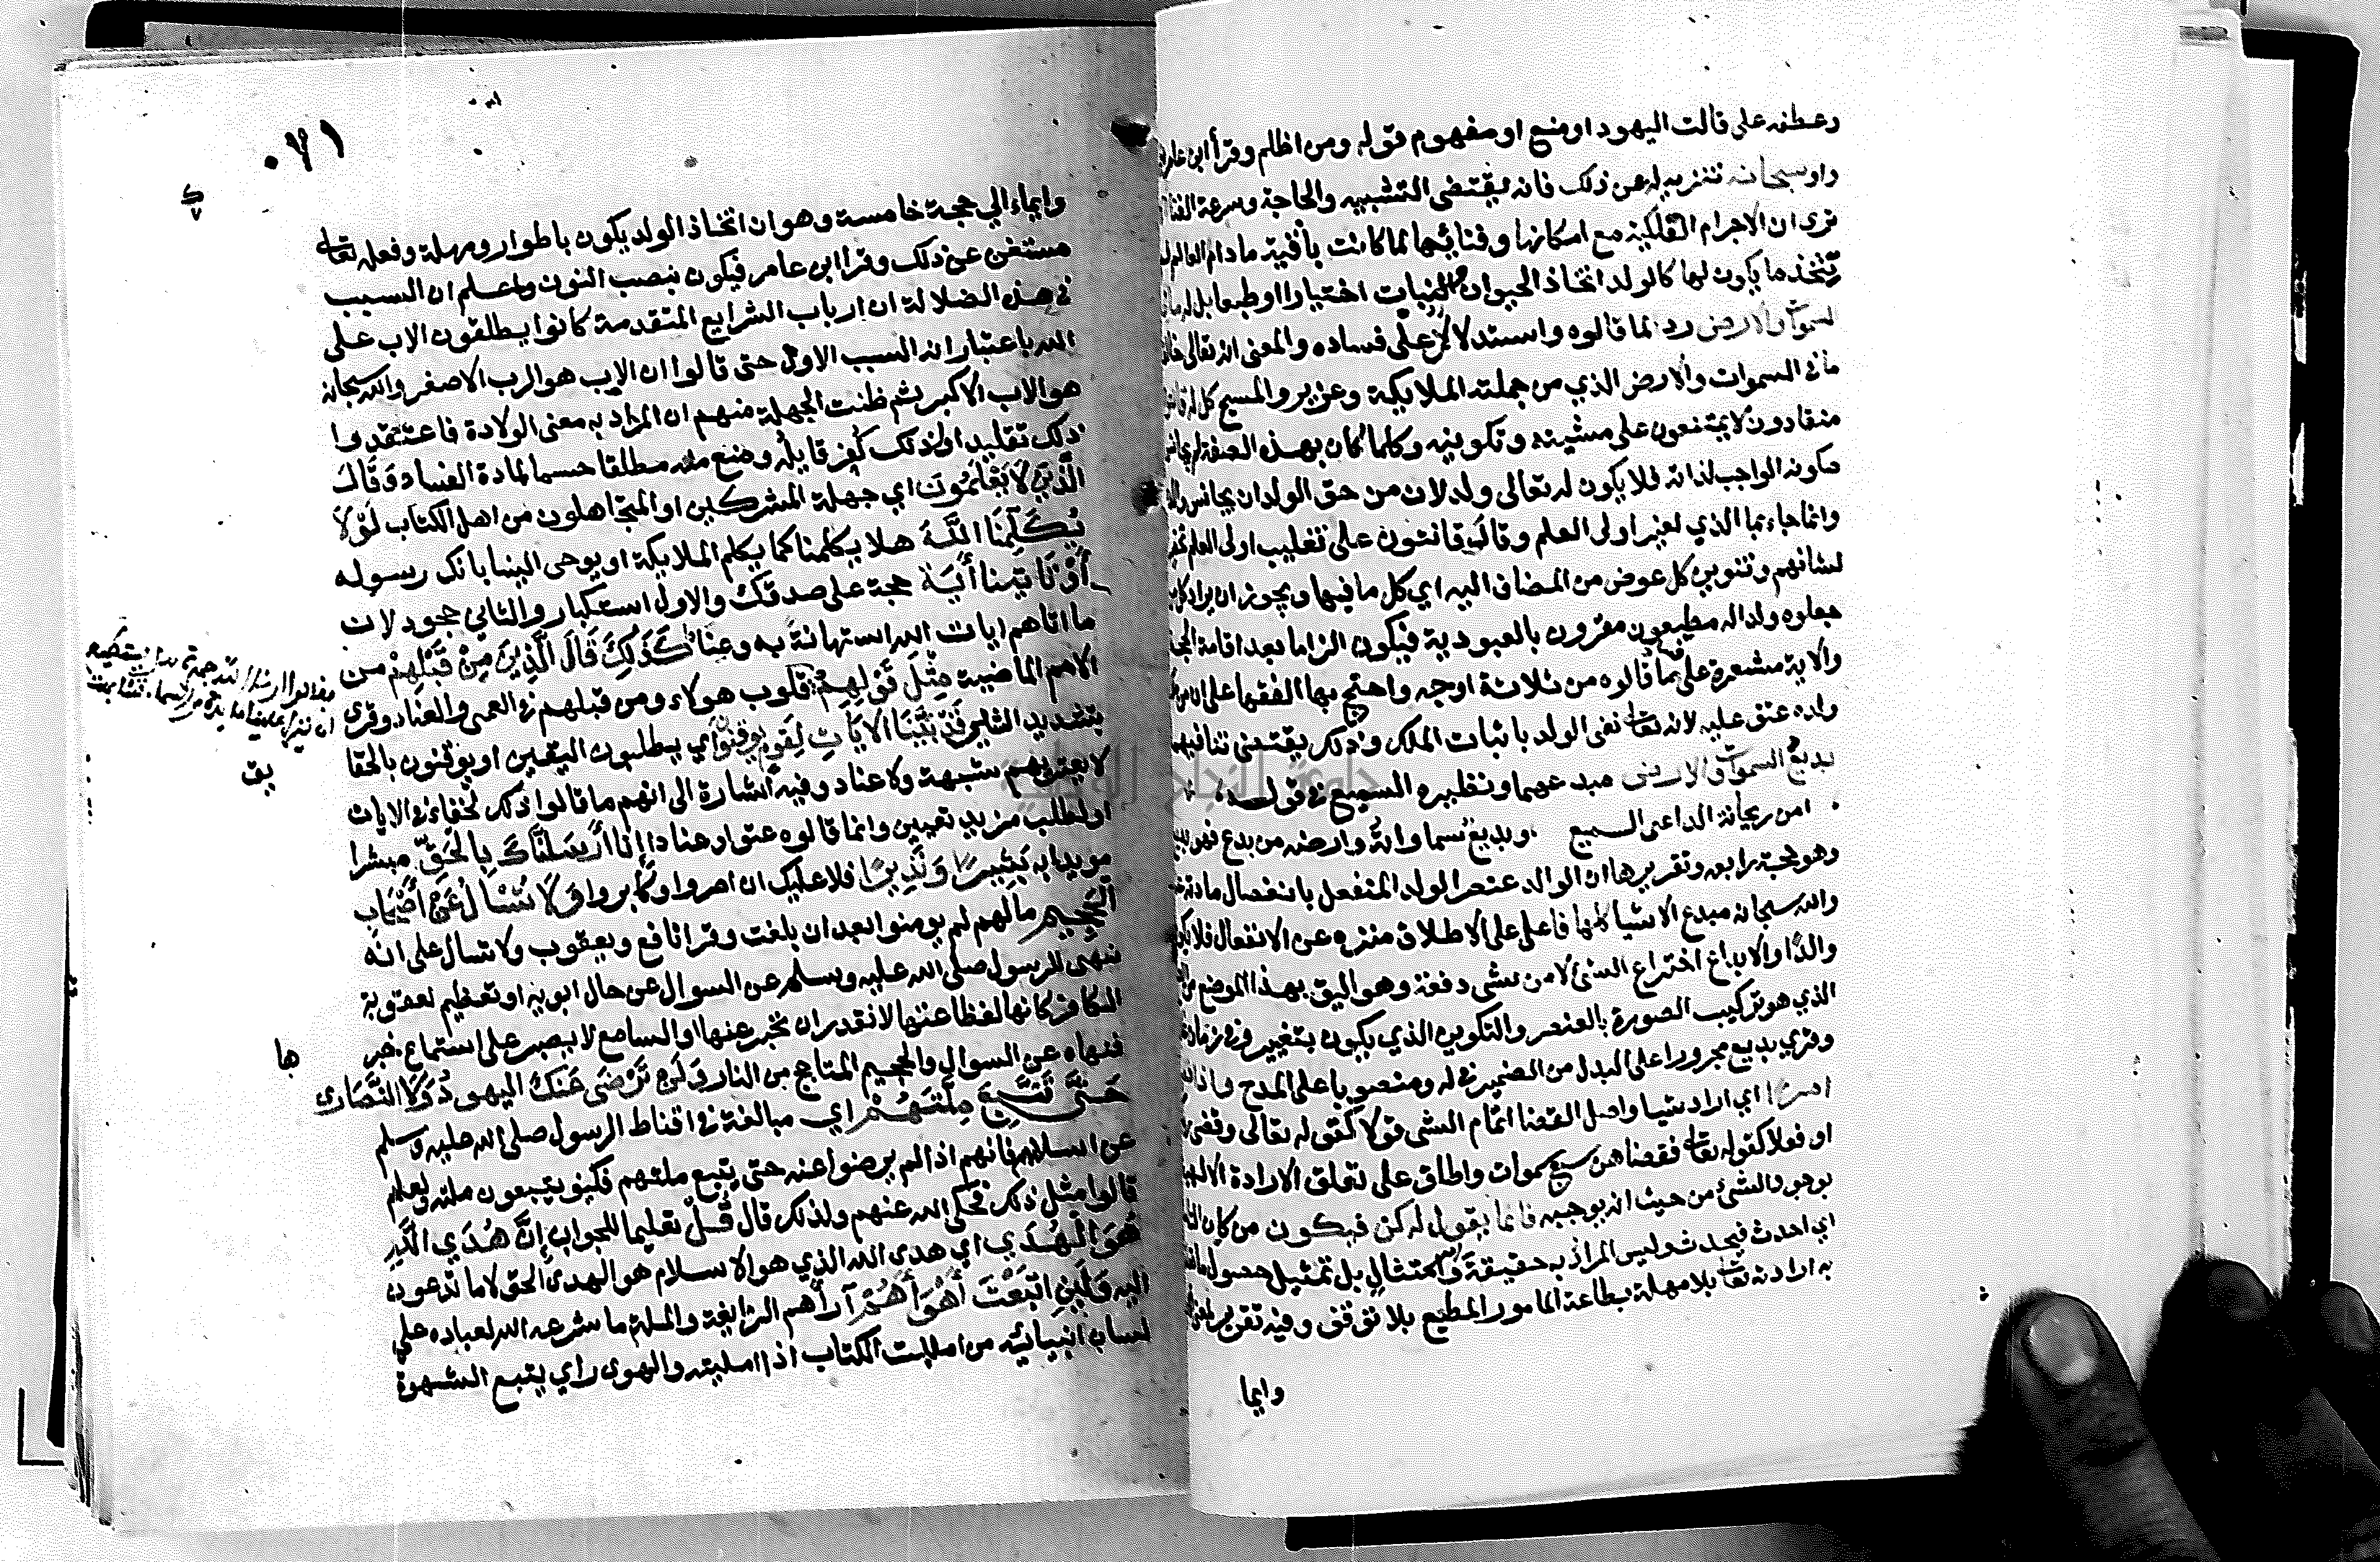 وعطفه على قالت اليهود او منع او مفهوم قوله ومن اظلم وقرأ ابن عامر
واو سبحانه تنزيه له عن ذلك فانه يقتضى التشبيه والحاجة وسرعة الفنا
ترى ان الاجرام الفلكية مع امكانها وفنائها لما كانت باقية ما دام العالم لم
تتخذ ما يكون لها كالولد اتخاذ الحيوان والنبات اختيارا او طبعا بل له ما في
السموات والارض رد لما قالوه واستدلال على فساده والمعنى انه تعالى خالق
ما في السموات والارض الذي من جملته الملايكة وعزير والمسيح كل له قانتون
منقادون لا يمتنعون على مشيته وتكوينه وكلما كان بهذه الصفة لم يجانس
مكونه الواجب لذاته فلا يكون له تعالى ولد لان من حق الولد ان يجانس والده
وانما جاء بما الذي لغير اولى العلم وقال قانتون على تغليب اولى العلم
لشانهم وتنوين كل عوض من المضاف اليه اي كل ما فيها ويجوز ان يراد كل من
جعلوه ولدا له مطيعون مقرون بالعبودية فيكون الزاما بعد اقامة الحجة
والاية مشعرة على فساد ما قالوه من ثلاثة اوجه واحتج بها الفقها على ان من
ولده عتق عليه لانه تعالى نفى الولد باثبات الملك وذلك يقتضي تنافيهما
بديع السموات والارض مبدعهما ونظيره السميع في قوله
امن ريحانة الداعى السميع . وبديع سماواته وارضه من بدع فهو بديع
وهو حجة رابعه وتقريرها ان الوالد عنصر الولد المنفعل بانفصال مادته
والله سبحانه مبدع الاشيا كلها فاعل على الاطلاق منزه عن الانفعال فلا يكون
والدا والابداع اختراع الشئ لا من شى دفعة وهو اليق بهذا الموضع من
الذي هو تركيب الصورة بالعنصر والتكوين الذي يكون بتغيير وفي زمان
وقري بديع مجرورا على البدل من الضمير في له ومنصوبا على المدح واذا قضى
امرا اي اراد شيا واصل القضا اتمام الشى قولا كقوله تعالى وقضى
او فعلا كقوله تعالى فقضاهن سبع سموات واطلق على تعلق الارادة الالهية
بوجود الشئ من حيث انه يوجبه فانما يقول له كن فيكون من كان التامة
اي احدث فيحدث وليس المراد به حقيقة امر وامتثال بل تمثيل حصول ما
به ارادته تعالى بلا مهلة بطاعة المامور المطيع بلا توقف وفيه تقرير لمعنى
وايما
وايماء الي حجة خامسة وهو ان اتخاذ الولد يكون باطوار ومهلة وفعله تعالى
مستغن عن ذلك وقرا ابن عامر فيكون بنصب النون واعلم ان السبب
في هذه الضلالة ان ارباب الشرايع المتقدمة كانوا يطلقون الاب على
الله باعتبار انه السبب الاول حتى قالوا ان الاب هو الرب الاصغر والله سبحانه
هو الاب الاكبر ثم ظنت الجهلة منهم ان المراد به معنى الولادة فاعتقدوا
ذلك تقليدا ولذلك كفر قايله ومنع منه مطلقا حسما لمادة الفساد وَقَالَ
الَّذِينَ لَا يَعْلَمُونَ اي جهلة المشركين او المتجاهلون من اهل الكتاب لَوْلَا
يُكَلِّمُنَا اللَّهُ هلا يكلمنا كما يكلم الملايكة او يوحى الينا بانك رسوله
أَوْ تَاتِينا أَيَةٌ حجة على صدقك والاول استكبار والثاني جحود لان
ما اتاهم ايات الله استهانة به وعنادا كَذَلِكَ قَالَ الَّذِينَ مِنْ قَبْلِهِمْ من
الامم الماضية مِثْلَ قَوْلِهِمْ قلوب هولاء ومن قبلهم في العمى والعناد وقرى
بتشديد الشين قَدْ بَيَّنَا الْايَاتِ لِقَومٍ يوقنون اي يطلبون اليقين او يوقنون بالحقا
يق
لا يعتريهم شبهة ولا عناد وفيه اشارة الى انهم ما قالوا ذلك لخفاء في الايات
او لطلب مزيد تعيين وانما قالوه عتوا وعنادا إنا أَرْسَلْنَاكَ بِالْحَقِّ مبشرا
مويدا به بَشِيرًا وَنَذِيرًا فلا عليك ان اصروا وكابروا وَلَا تُسْالُ عَنْ أَصْحَابِ
الْجَحِيمِ ما لهم لم يومنوا بعد ان بلغت وقرا نافع ويعقوب ولا تسال على انه
نهى للرسول صلى الله عليه وسلم عن السوال عن حال ابويه او تعظيم لعقوبة
الكافر كانها لفظاعتها لا نقدر ان تخبر عنها او السامع لا يصبر على استماع خبر
ها
فنهاه عن السوال والجحيم المتاجج من النار وَلَنْ تَرْضَى عَنْكَ اليهودُ وَلَا النَّصَارى
حَتَّى تَتَّبِعَ مِلَّتَهُمْ اي مبالغة في اقناط الرسول صلى الله عليه وسلم
عن اسلامهم فانهم اذا لم يرضوا عنه حتى يتبع ملتهم فكيف يتبعون ملته ولعلهم
قالوا مثل ذلك فحكى الله عنهم ولذلك قال قُلْ تعليما للجواب إِنَّ هُدَي اللَّهِ
هُوَ الْهُدَي اي هدى الله الذي هو الاسلام هو الهدى الحق لا ما تدعون
اليه وَلَئِنِ اتَّبَعْتَ أَهْوَاءَهُمْ آراهم الزايغة والملة ما شرعه الله لعباده على
لسان انبيائه من امللت الكتاب اذا امليته والهوى راي يتبع الشهوة